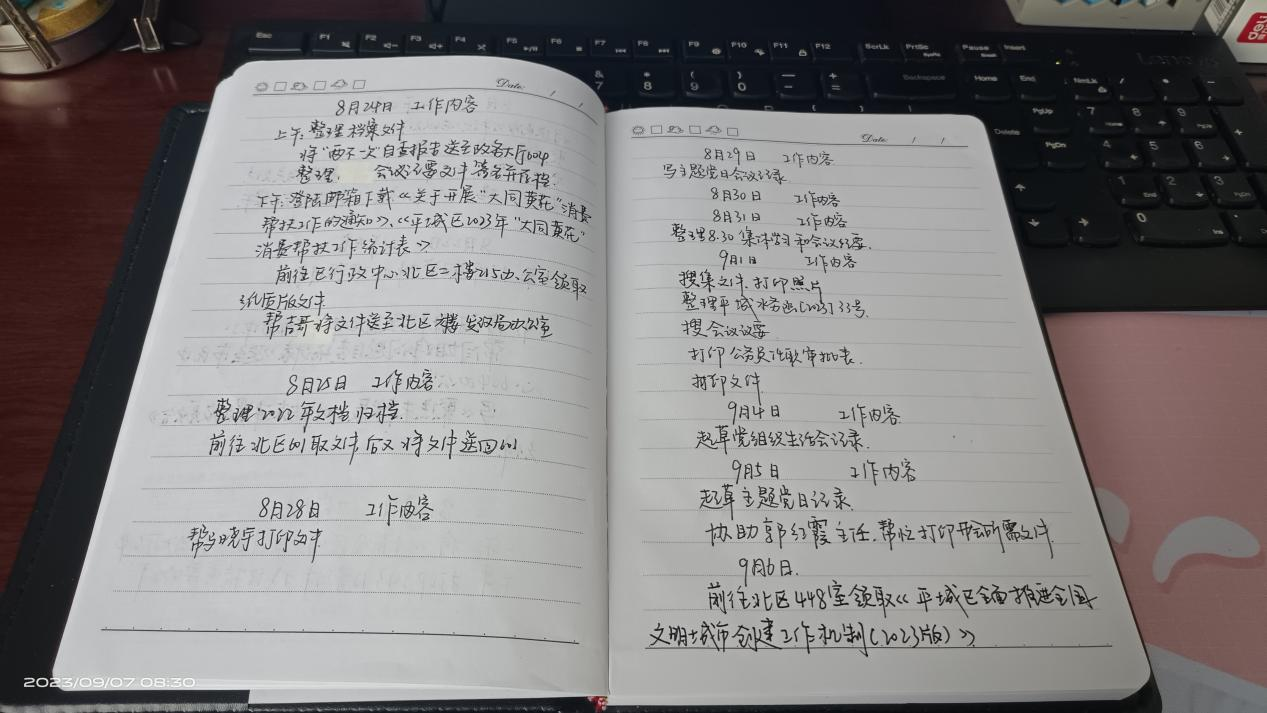 Date: / /
8月24日 工作内容
上午:整理档案文件
将"两不一欠"自查报告送至政务大厅604
整理, 会议记录文件签名并存档.
下午:登陆邮箱下载《关于开展"大同黄花"消费
帮扶工作的通知》、《平城区2023年"大同黄花"
消费帮扶工作统计表》
前往区行政中心北区二楼215办公室领取
纸质版文件
帮吉哥将文件送至北区 楼发改局办公室
8月25日 工作内容
整理2022年文档归档.
前往北区 取文件,后又将文件送回
8月28日 工作内容
帮马晓宇打印文件
Date: / /
8月29日 工作内容
写主题党日会议记录
8月30日 工作内容
8月31日 工作内容
整理8.30集体学习和会议纪要.
9月1日 工作内容
搜集文件.打印照片
整理平城 函[2023]33号
搜会议议要
打印公务员 职审批表.
打印文件
9月4日 工作内容
起草党组织生活会记录.
9月5日 工作内容
起草主题党日记录.
协助郭红霞主任.帮忙打印开会所需文件
9月6日.
前往北区448室领取《平城区全面推进全国
文明城市创建工作机制(2023版)》
2023/09/07 08:30
Esc
F1
F2
F3
F4
F5
F6
F7
F8
F9
F10
F11
F12
ScrLk
PrtSc
Pause
Break
Insert
Backspace
Home
End
NmLk
Delete
PgUp
PgDn
Lenovo
deli